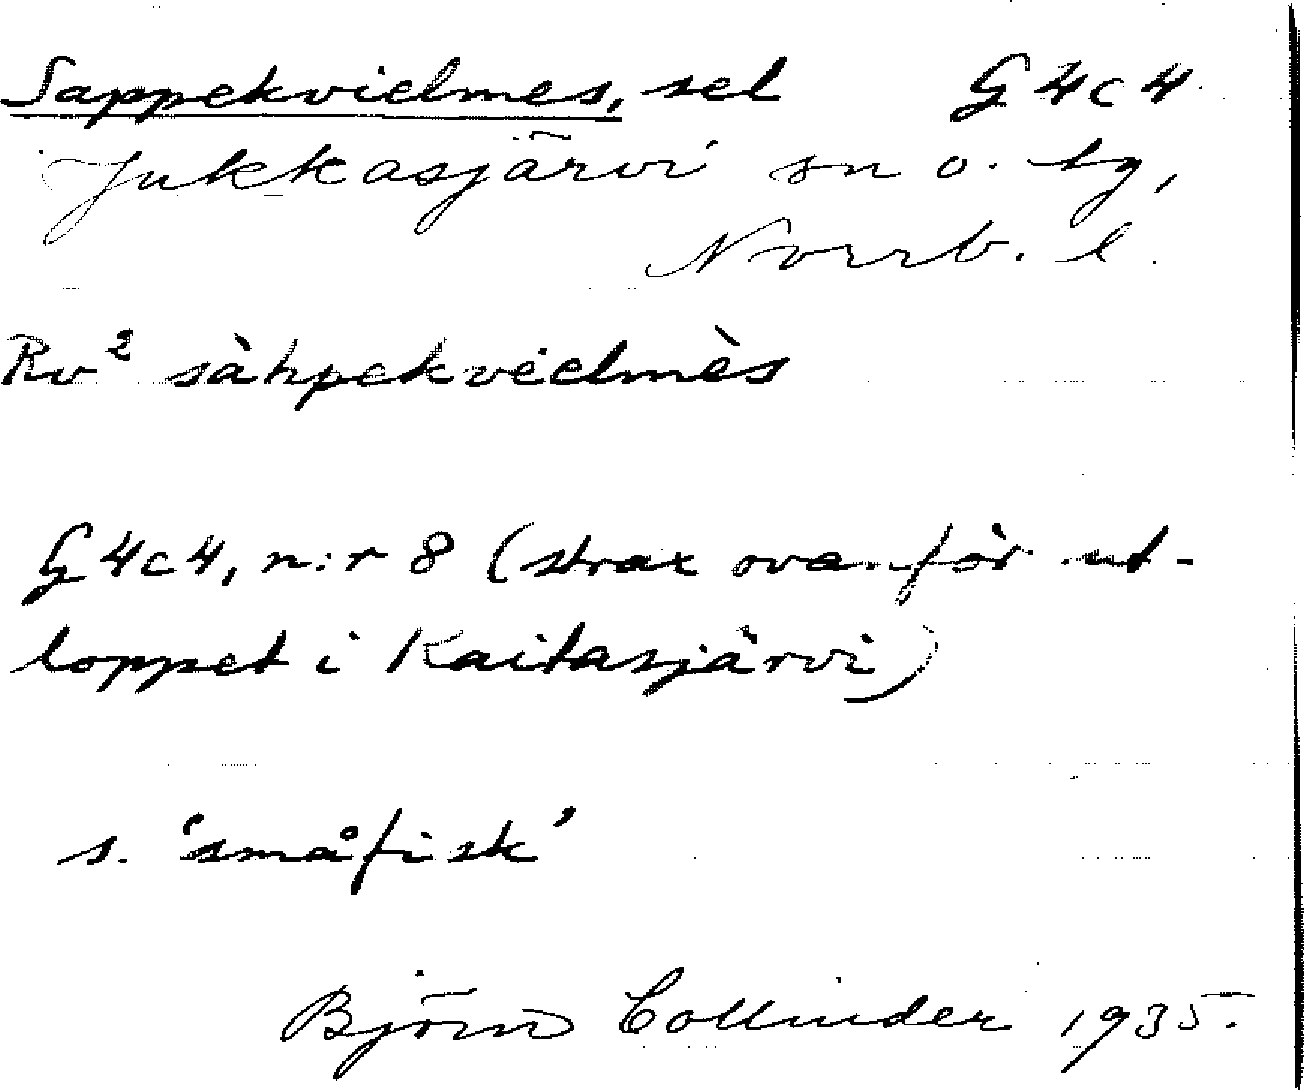 Sappekvielmes, sel G 4 c 4
Jukkasjärvi sn o. tg,
Norrb. l.
Rv² sàhpekvielmès
G 4 c 4, n:r 8 (strax ovanför ut-
loppet i Kaitasjärvi)
s. 'småfisk'
Björn Collinder 1935.